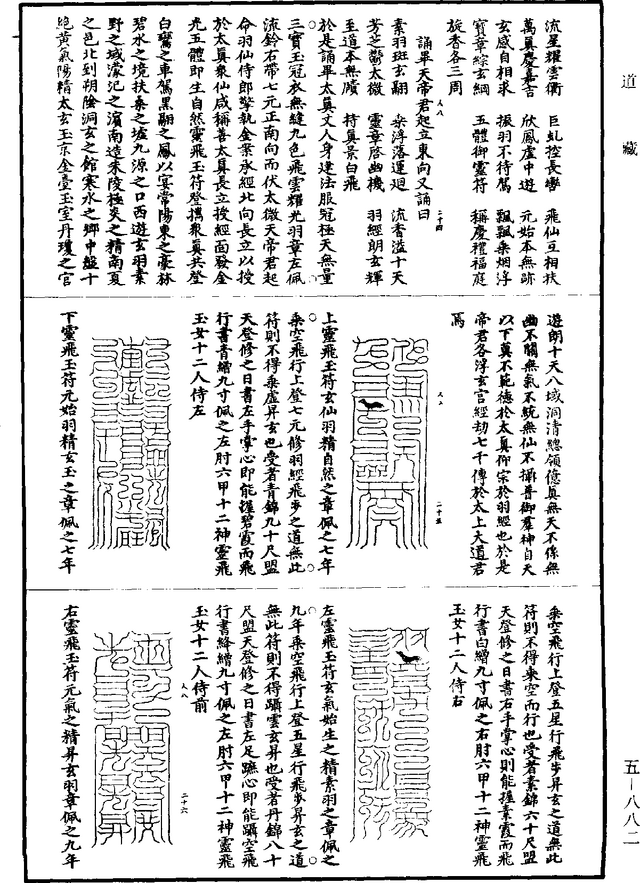 道藏
流星耀雲衢　巨虬控長轡　飛仙互相扶
萬真慶嘉吉　欣鳳虛中遊　元始本無跡
玄感自相求　振羽不待駕　飄飄乘烟浮
寶章綜玄綱　五體御靈符　稱慶禮福庭
旋香各三周
誦畢天帝君起立東向又誦曰
素羽班玄翮　乘浮落運迴　流香溢十天
芳芝鬱太微　靈章啓幽機　羽經朗玄輝
至道本無隤　持真景自飛
於是誦畢太真丈人身建法服冠極天無量
三寶玉冠衣無縫九色飛雲耀光羽章左佩
流鈴右帶七元正南向而伏太微天帝君起
命羽仙侍郎擎執金案承經北向長立以授
於太真衆仙咸稱善太真長立授經面發金
光五體即生自然靈飛玉符登攜衆真共登
白鸞之車駕黑翮之鳳以宴常陽東之豪林
碧水之境扶桑之墟九源之口西遊玄羽素
野之域濛汜之濱南造朱陵極炎之精南夏
之邑北到朔陰洞玄之館寒水之鄉中盤十
絕黃氣陽精太玄玉京金臺玉室丹瓊之宮
二十四
遊朗十天八域洞清總領億真無天不係無
幽不關無氣不統無仙不攝普御羣神自天
以下真不範德於太真仰宗於羽經也於是
帝君各浮玄宮經劫七千傳於太上大道君
焉
二十五
上靈飛玉符玄仙羽精自然之章佩之七年
乘空飛行上登七元修羽經飛步之道無此
符則不得乘虛昇玄也受者青錦九十尺盟
天登修之日書左手掌心即能握碧霞而飛
行書青繒九寸佩之左肘六甲十二神靈飛
玉女十二人侍左
下靈飛玉符元始羽精玄玉之章佩之七年
乘空飛行上登五星行飛步昇玄之道無此
符則不得乘空而行也受者素錦六十尺盟
天登修之日書右手掌心則能握素霞而飛
行書白繒九寸佩之右肘六甲十二神靈飛
玉女十二人侍右
左靈飛玉符玄氣始生之精素羽之章佩之
九年乘空飛行上登五星行飛步昇玄之道
無此符則不得躡雲玄昇也受者丹錦八十
尺盟天登修之日書左足蹠心即能躡空飛
行書絳繒九寸佩之左肘六甲十二神靈飛
玉女十二人侍前
二十六
右靈飛玉符元氣之精昇玄羽章佩之九年
五-八八二